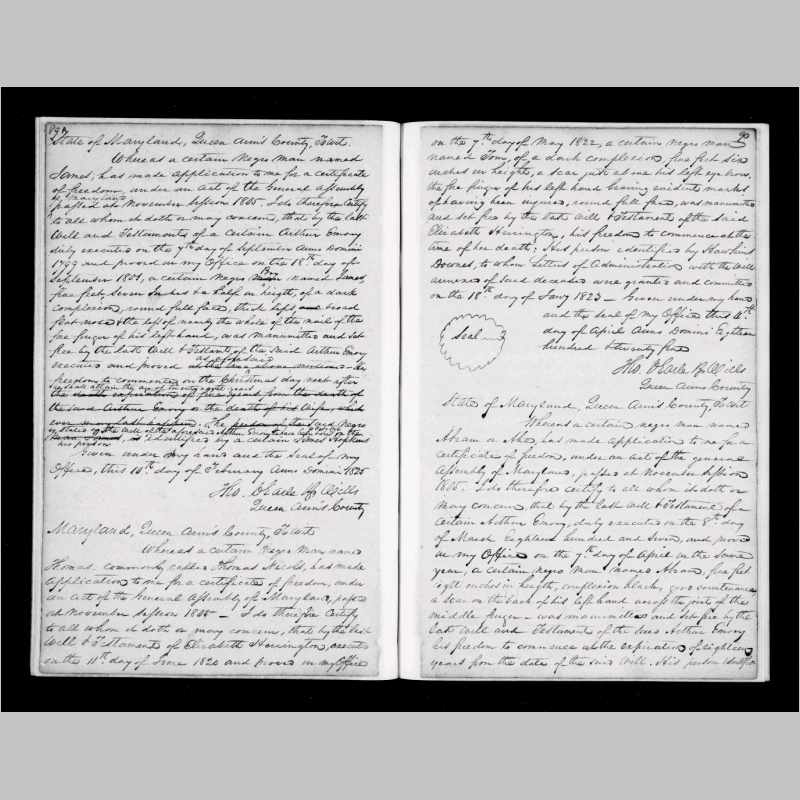 State of Maryland, Queen Ann's County, To wit.
Whereas a certain Negro man named
James, has made application to me for a certificate
of freedom, under an act of the General Assembly
of Maryland
passed at November Session 1805. I do therefore Certify
to all whom it doth or may concern, that by the last
Will and Testament of a Certain Arthur Emory
duly executed on the 7th day of September Anno Domini
and proved in my Office on the 18th day of
September, a certain Negro man named James,
Five feet, Seven Inches & a half in height, of a dark
complexion, round full face, thick lips broad
flat nose & the left of nearly the whole of the nail of the
fore finger of his left hand, was manumitted and set
free by the last Will & Testament of the said Arthur Emory
executed and proved as aforesaid
freedom to commence on the Christmas day next after
the expiration of five years from the death of
the said Arthur Emory or the death of his Wife,
is identified by a certain James Hopkins
his person
Given under my hand and the seal of my
Office, this 10th day of February Anno Domini 1825
Tho. C. Earle Reg Wills
Queen Ann's County
Maryland, Queen Ann's County, To wit
Whereas a certain Negro Man named
Thomas commonly called Thomas, has made
application to me for a certificate of freedom, under
an act of the General Assembly, of Maryland, passed
at November Session 1805 — I do therefore Certify
to all whom it doth or may concern, that by the last
Will & Testament of Elizabeth Herrington, executed
on the 11th day of June 1820 and proved in my Office
on the 7th day of May 1822, a certain negro man
named Tom, of a dark complexion, five feet six
inches in height, a scar just above his left eye brow,
the fore finger of his left hand bearing evident marks
of having been injured, round full face, was manumitted
and set free by the last Will & Testament of the said
Elizabeth Herrington, his freedom to commence at the
time of her death; His person identified by Hawkins
Downes, to whom Letters of Administration with the Will
annexed of said deceased were granted and committed
on the 18th day of Jany 1823 — Given under my hand
and the seal of my Office this
day of April Anno Domini Eighteen
hundred & twenty five
Seal
Tho. C. Earle Reg Wills
Queen Ann's County
State of Maryland, Queen Ann's County, To wit
Whereas a certain negro man named
Abram or Abe, has made application to me for a
Certificate of freedom, under an act of the general
Assembly of Maryland, passed at November Session
1805. I do therefore certify to all whom it doth or
may concern, that by the Last Will & Testament of a
certain Arthur Emory, duly executed on the 8th day
of March Eighteen hundred and Seven, and proved
in my Office on the 7th day of April in the Same
year, a certain Negro Man named Abram, five feet
eight inches in height, complexion black, good countenance
a scar on the back of his left hand across the joint of the
middle finger — was manumitted and Set free by the
Last Will and Testament of the said Arthur Emory
his freedom to commence at the expiration of Eighteen
years from the date of the said Will. His person identified